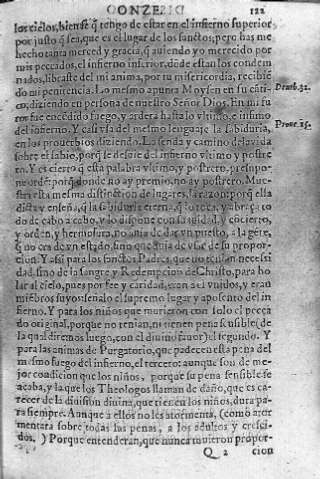 CONZEBID 122
los cielos, biense q̃ tengo de estar en el infierno superior
por justo q̃ sea, que es el lugar de los sanctos; pero has me
hecho tanta merced y gracia, q̃ auiendo yo merecido por
mis peccados, el infierno inferior, dõde estan los conden
nados, libraste del mi anima, por tu misericordia, recibiẽ
do mi penitencia. Lo mesmo apunta Moysen en su cãti- Deut. 32.
co, diziendo en persona de nuestro Señor Dios. En mi fu
ror fue encẽdido fuego, y ardera hasta lo vltimo, e infimo
del infierno. Y casi vsa del mesmo lenguaje la Sabiduria, Prou. 15.
en los prouerbios diziendo. La senda y camino de la vida
sobre el sabio, porq̃ le desuie del infierno vltimo y postre
ro. Y es cierto q̃ esta palabra vltimo, y postrero, presupo-
ne ordẽ: porq̃ donde no ay primero, no ay postrero. Mue
stra esta mesma distinction de lugares, la razon: porq̃ ella
dicta y enseña, q̃ la Sabiduria eterna, q̃ toca
do de cabo a cabo, y lo dispone con suauidad, y cõcierto,
y orden, y hermosura, no auia de dar vn puesto, a la gẽte,
q̃ no era de vn estado, sino que auia de vsar de su propor-
cion. Y assi para los sanctos Padres, que no tenian necessi
dad, sino de la sangre y Redempcion de Christo, para ho
lar al cielo, pues por fee y caridad, eran a el vnidos, y eran
miẽbros suyos: señalo el supremo lugar y aposento del in
fierno. Y para los niños que murieron con solo el pecca
do original, porque no tenian, ni tienen pena sensible (de
la qual diremos luego, con el diuino fauor) el segundo. Y
para las animas de Purgatorio, que padecen esta pena del
mismo fuego del infierno, el tercero: aunque son de me-
jor condicion que los niños, porque su pena sensible se
acaba, y la que los Theologos llaman de daño, que es ca-
recer de la diuision diuina, que tienen los niños, dura pa-
ra siempre. Aunque a ellos no les atormenta, (como ator
mentara sobre todas las penas, a los adultos y cresci-
dos.) Porque entenderan, que nunca tuuieron propor-
Q 2 cion